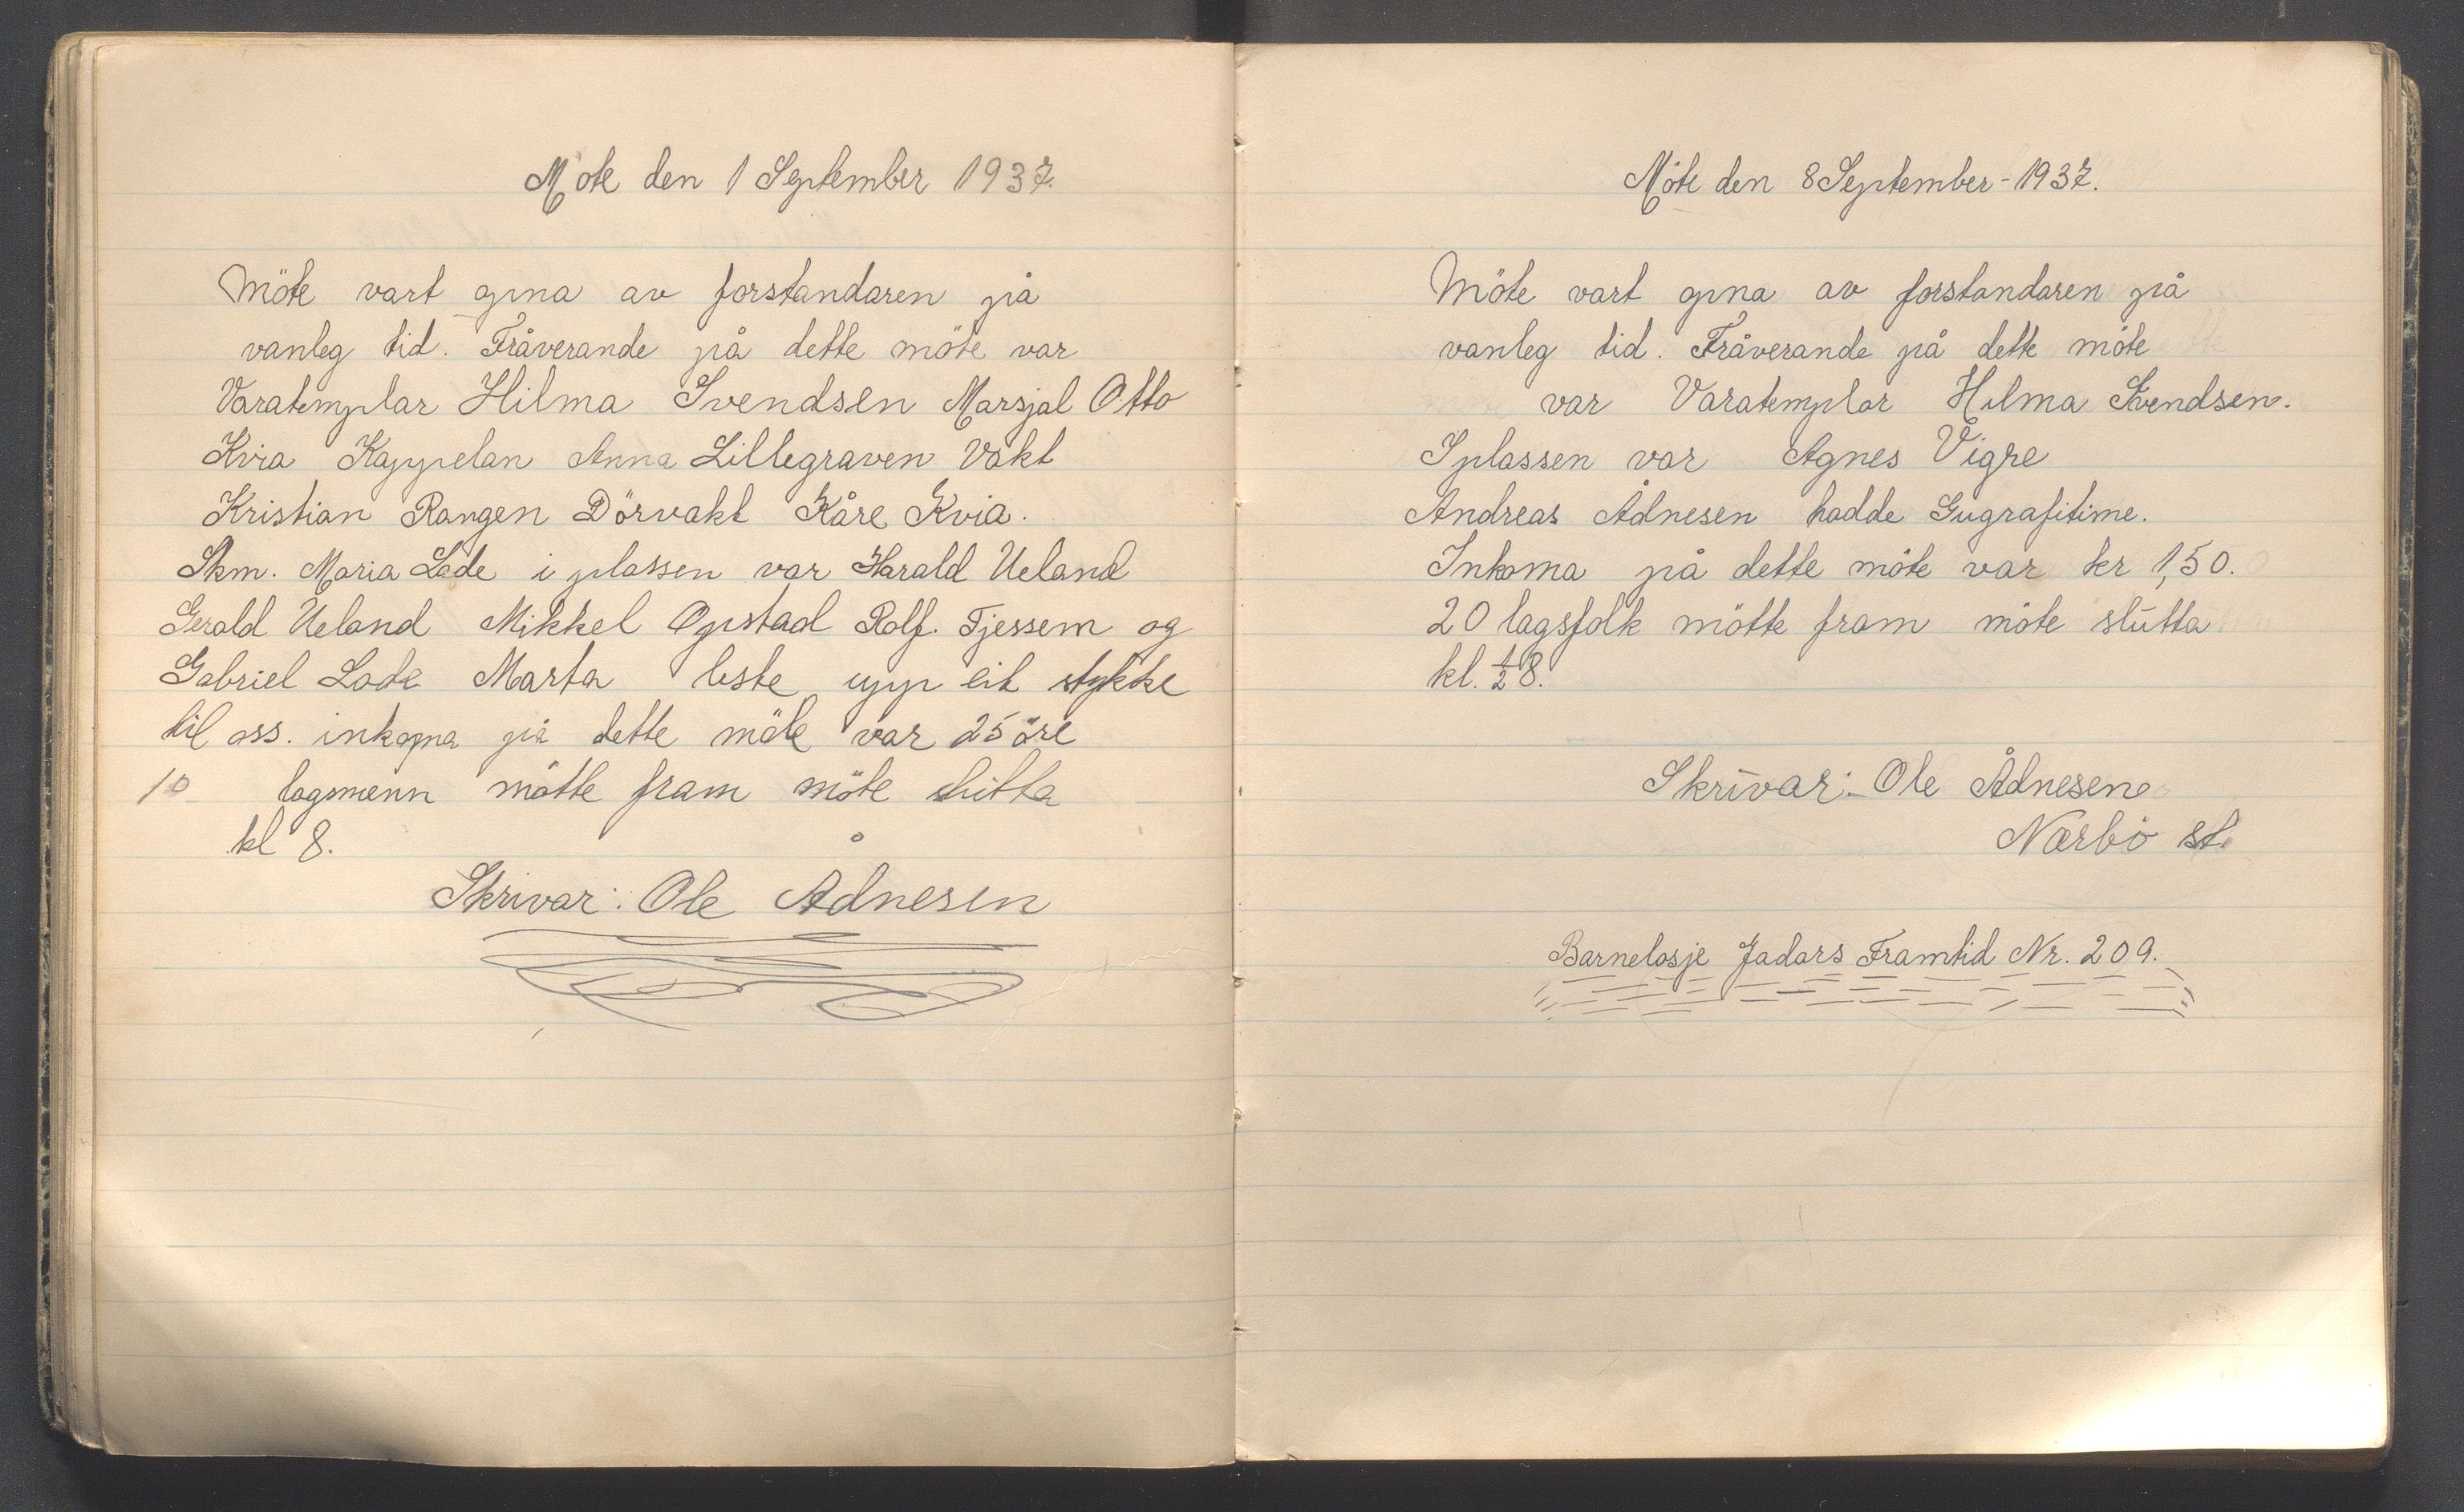 Møte den 1 September 1937.
Möte vart opna av forstandaren på
vanleg tid. Fråverande på dette möte var
Varatemplar Hilma Svendsen Marsjal Otto
Kvia Kappelan Anna Lillegraven Vakt
Kristian Rangen Dörvakt Kåre Kvia.
Skm. Maria Lode i plassen var Harald Ueland
Gerald Ueland Mikkel Opstad Rolf. Tjessem og
Gabriel Lode Marta leste upp eit stykke
til oss. inkoma på dette möte var 25 öre
10 lagsmenn mötte fram möte slutta
kl 8.
Skrivar: Ole Ådnesen
Möte den 8 September - 1937.
Möte vart opna av forstandaren på
vanleg tid. Fråverande på dette möte
var Varatemplar Hilma Svendsen.
I plassen var Agnes Vigre
Andreas Ådnesen hadde Gugrafitime.
Inkoma på dette möte var kr 1,50.
20 lagsfolk mötte fram möte slutta
kl. ½ 8.
Skrivar: Ole Ådnesen
Nærbö st.
Barnelosje Jadars Framtid Nr. 209.